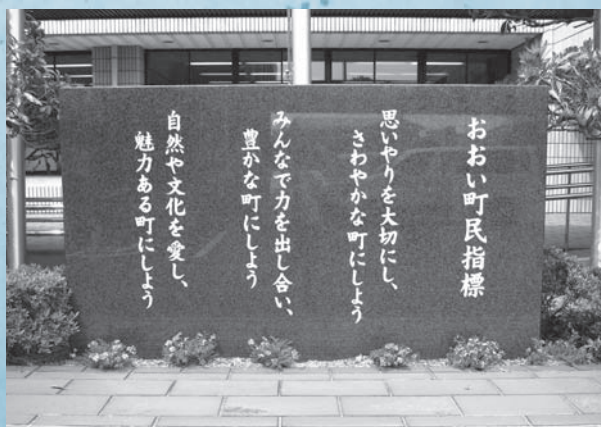 おおい町民指標
思いやりを大切にし、
さわやかな町にしよう
みんなで力を出し合い、
豊かな町にしよう
自然や文化を愛し、
魅力ある町にしよう